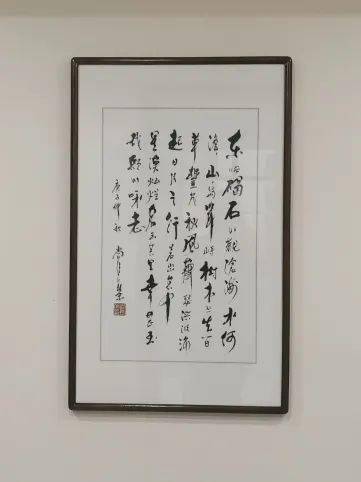 東临碣石以觀滄海水何
澹澹山島竦峙樹木丛生百
草豐茂秋風蕭瑟洪波涌
起日月之行若出其中
星漢燦爛若出其里幸甚至
哉歌以咏志
庚子仲秋